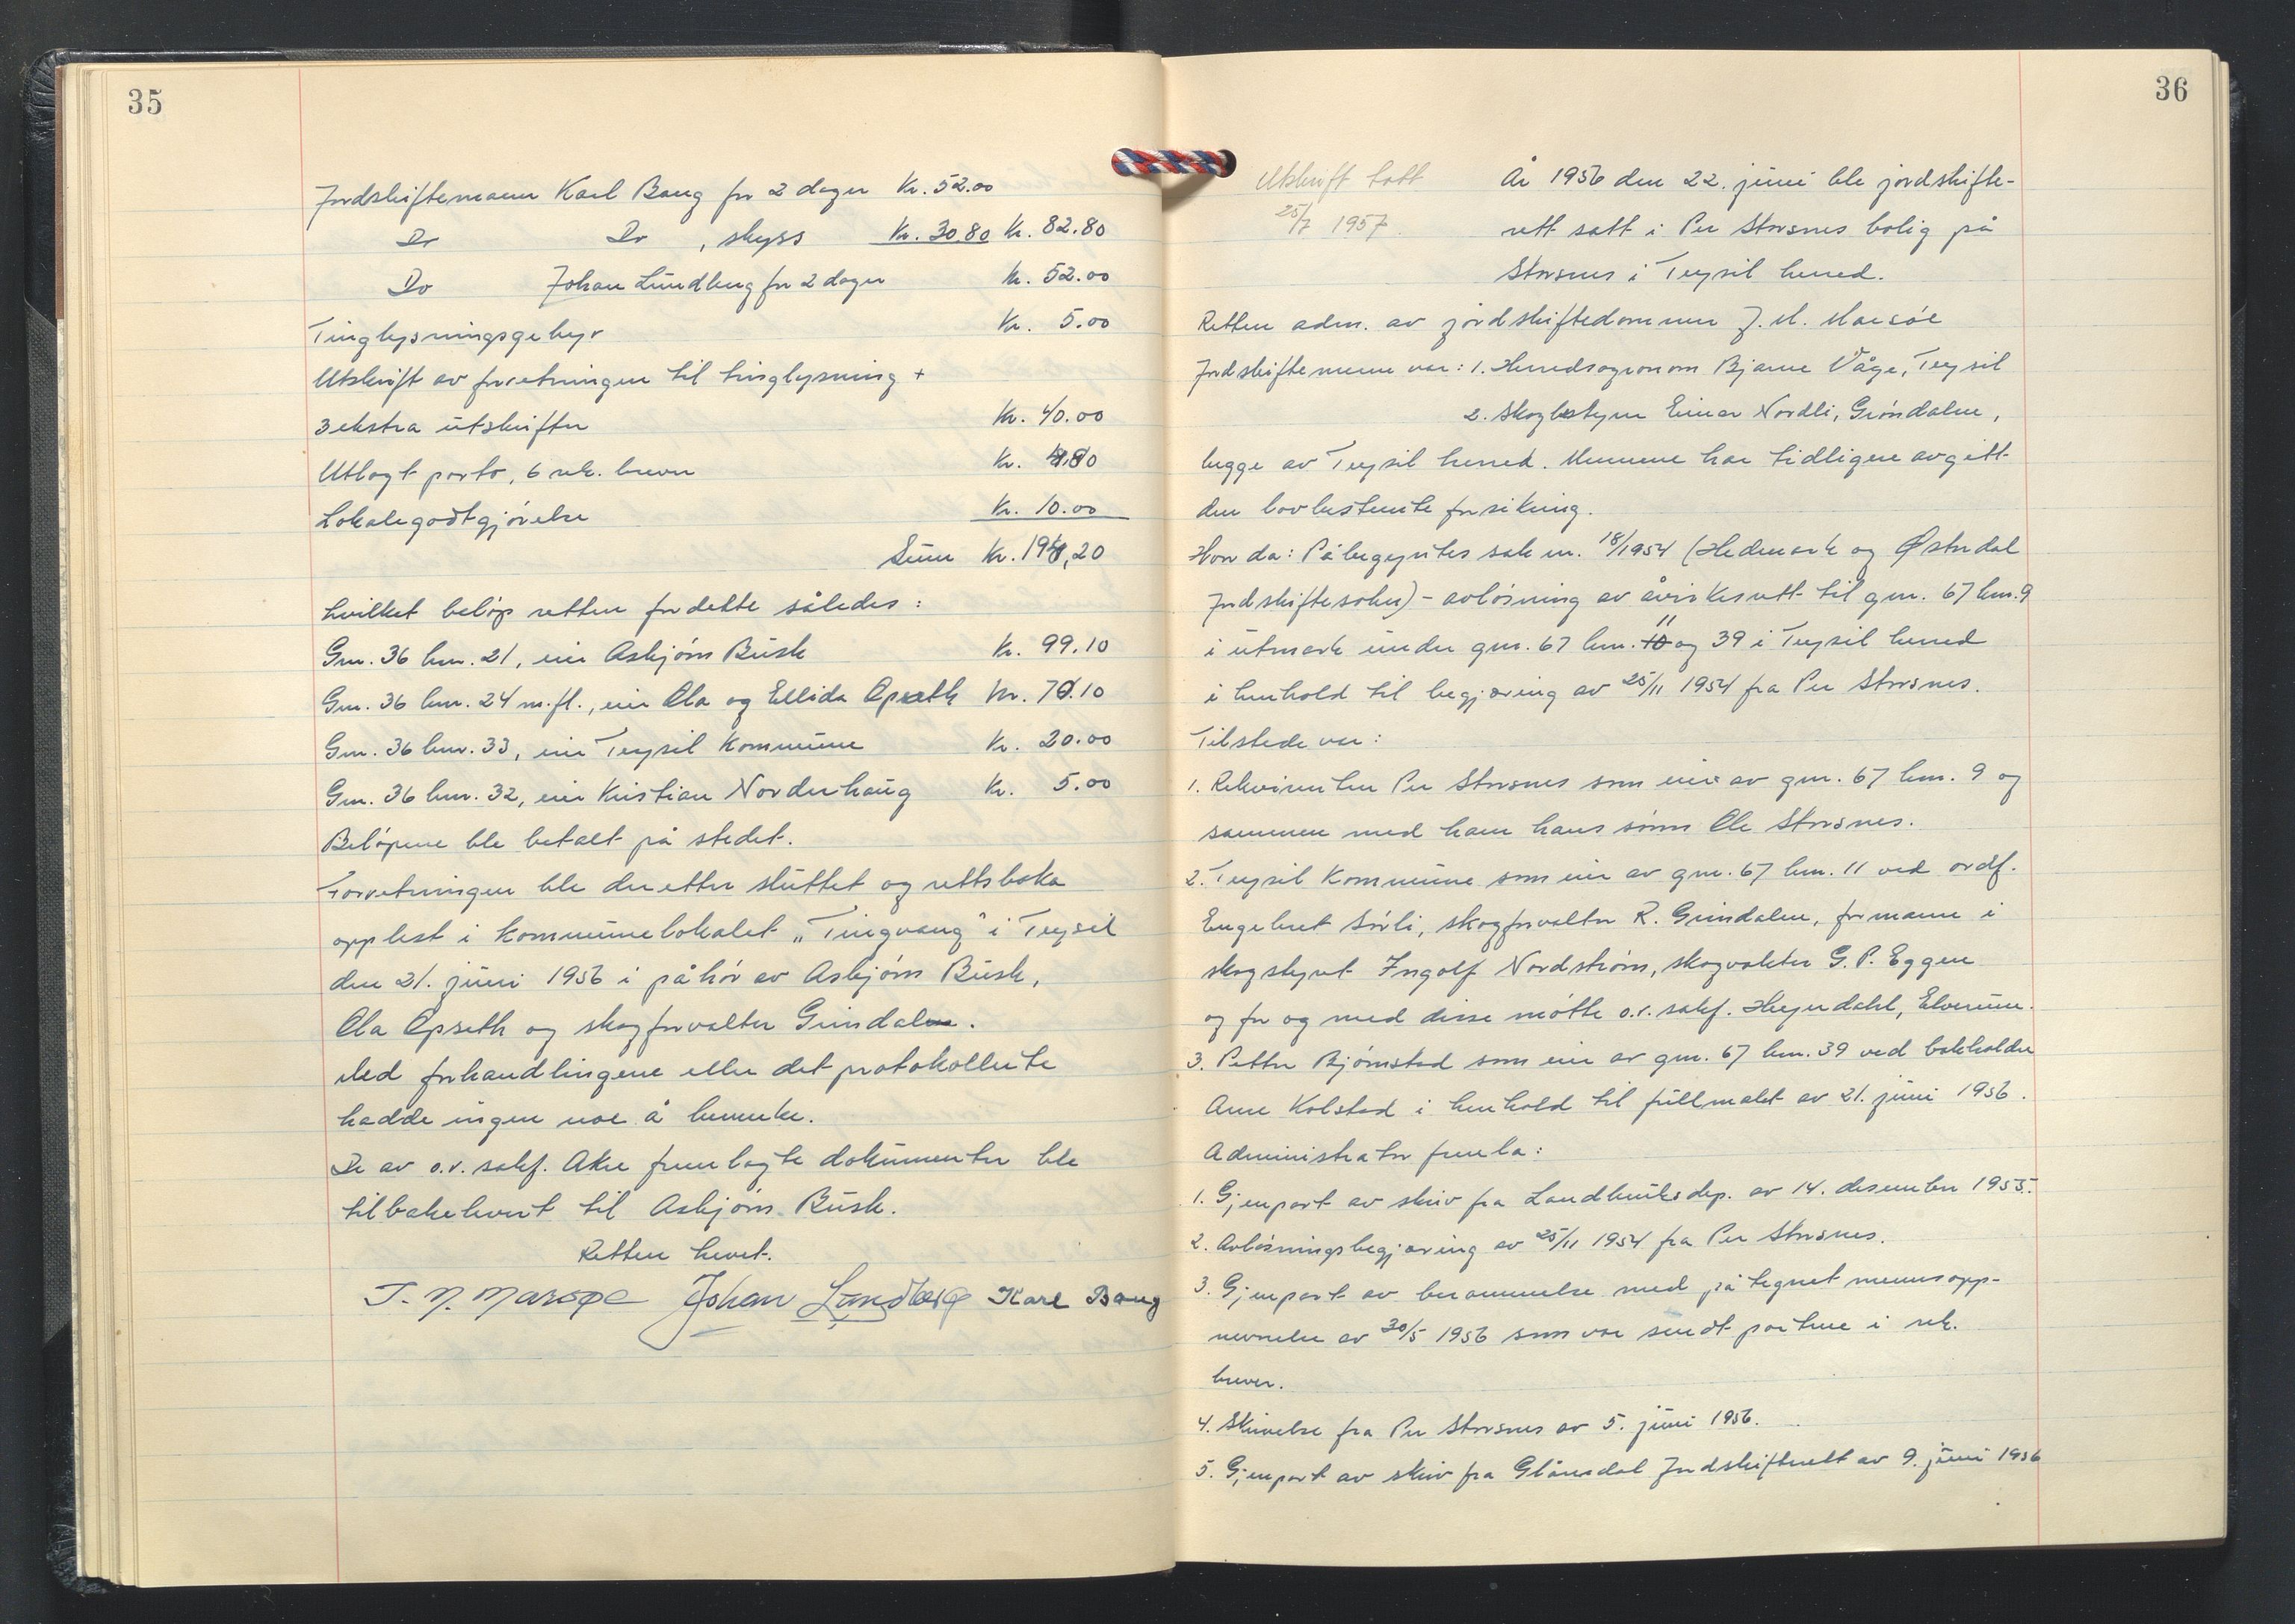 35
Jordskiftemann Karl Bang for 2 dager Kr. 52.00
Do Do , skyss Kr. 30.80 Kr. 82.80
Do Johan Lundberg for 2 dager Kr. 52.00
Tinglysningsgebyr Kr. 5.00
Utskrift av forretningen til tinglysning +
3 ekstra utskrifter Kr. 40.00
Utlagt porto, 6 rek. brever Kr.
Lokalegodtgjørelse Kr. 10.00
Sum Kr. 194,20
hvilket beløp retten fordelte således:
Gnr. 36 bnr. 21, eier Asbjørn Busk Kr. 99.10
Gnr. 36 bnr. 24 m.fl., eier Ola og Ellida Opseth Kr. 70.10
Gnr. 36 bnr. 33, eier Trysil Kommune Kr. 20.00
Gnr. 36 bnr. 32, eier Kristian Norderhaug Kr. 5.00
Beløpene ble betalt på stedet.
Forretningen ble deretter sluttet og rettsboka
opplest i kommunelokalet „Tingvang" i Trysil
den 21. juni 1956 i påhør av Asbjørn Busk,
Ola Opseth og skogforvalter Grindal.
Ved forhandlingene eller det protokollerte
hadde ingen noe å bemerke.
De av o.r. sakf. Akre fremlagte dokumenter ble
tilbakelevert til Asbjørn Busk.
Retten hevet.
J. M. Marsøe Johan Lundberg Karl Bang
36
Utskrift tatt
25/7 1957.
År 1956 den 22. juni ble jordskifte-
rett satt i Per Storsnes bolig på
Storsnes i Trysil herred.
Retten adm. av jordskiftedommer J. M. Marsøe
Jordskiftemenn var: 1. Herredsagronom Bjarne Våge, Trysil
2. Skogbestyrer Einar Nordli, Grøndalen,
begge av Trysil herred. Mennene har tidligere avgitt
den lovbestemte forsikring.
Hvor da: Påbegyntes sak nr. 18/1954 (Hedmark og Østerdal
Jordskiftesoknr) - avløsning av åvirkesrett til gnr. 67 bnr. 9
i utmark under gnr. 67 bnr. 11 og 39 i Trysil herred
i henhold til begjæring av 25/11 1954 fra Per Storsnes.
Tilstede var:
1. Rekvirenten Per Storsnes som eier av gnr. 67 bnr. 9 og
sammen med ham hans sønn Ole Storsnes.
2. Trysil Kommune som eier av gnr. 67 bnr. 11 ved ordf.
Engebret Sørli, skogforvalter R. Grindalen, formann i
skogstyret Ingolf Nordstrøm, skogvokter G. P. Eggen
og for og med disse møtte o.r. sakf. Heyerdahl, Elverum.
3. Petter Bjørnstad som eier av gnr. 67 bnr. 39 ved bokholder
Arne Kolstad i henhold til fullmakt av 21. juni 1956.
Administrator fremla:
1. Gjenpart av skriv fra Landbruksdep. av 14. desember 1955.
2. Avløsningsbegjæring av 25/11 1954 fra Per Storsnes.
3. Gjenpart av berammelse med påtegnet mennsopp-
nevnelse av 30/5 1956 som var sendt partene i rek.
brever.
4. Skrivelse fra Per Storsnes av 5. juni 1956.
5. Gjenpart av skriv fra Glåmdal Jordskifterett av 9. juni 1956